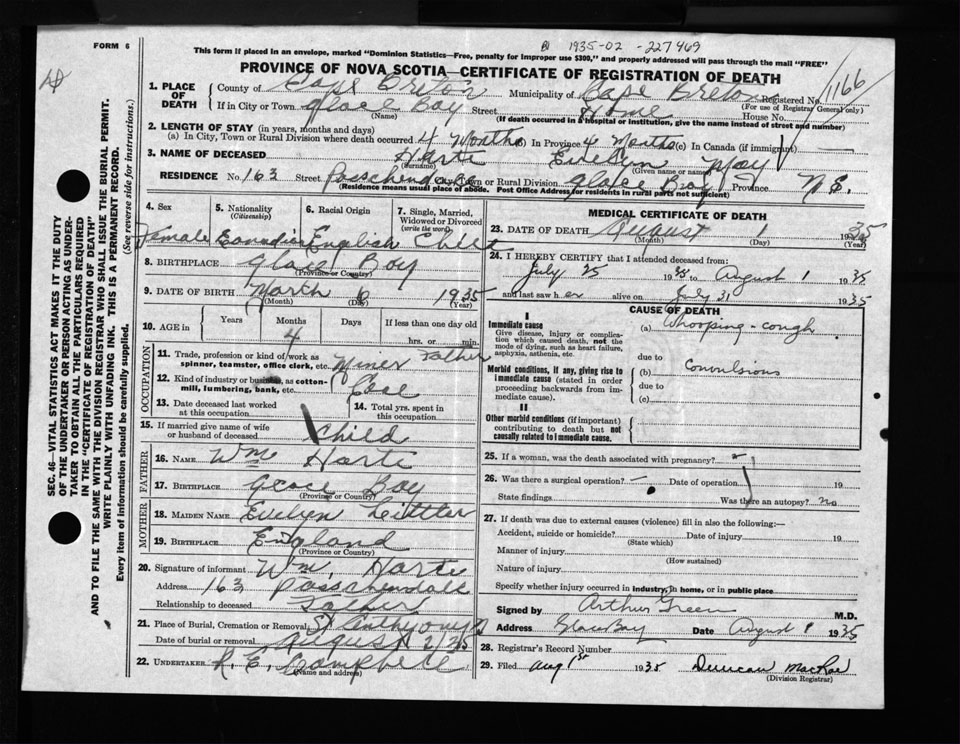 FORM 6
1935-02 - 227469
This form if placed in an envelope, marked "Dominion Statistics—Free, penalty for improper use $300," and properly addressed will pass through the mail "FREE"
PROVINCE OF NOVA SCOTIA—CERTIFICATE OF REGISTRATION OF DEATH
1. PLACE OF DEATH County of Cape Breton Municipality of Cape Breton Registered No. 1166
(For use of Registrar General only)
If in City or Town Glace Bay Street Home House No.
(Name) (If death occurred in a hospital or institution, give the name instead of street and number)
2. LENGTH OF STAY (in years, months and days)
(a) In City, Town or Rural Division where death occurred 4 Months (b) In Province 4 Months (c) In Canada (if immigrant) —
3. NAME OF DECEASED Harte Evelyn May
(Surname) (Given name or names)
RESIDENCE No. 163 Street Passchendale City, Town or Rural Division Glace Bay Province N.S.
(Residence means usual place of abode. Post Office Address for residents in rural parts not sufficient)
4. Sex 5. Nationality (Citizenship) 6. Racial Origin 7. Single, Married, Widowed or Divorced (write the word)
Female Canadian English Child
8. BIRTHPLACE Glace Bay
(Province or Country)
9. DATE OF BIRTH March 6 1935
(Month) (Day) (Year)
10. AGE in Years Months Days If less than one day old
4 hrs. or min.
OCCUPATION
11. Trade, profession or kind of work as spinner, teamster, office clerk, etc. Miner Father
12. Kind of industry or business, as cotton-mill, lumbering, bank, etc. Coal
13. Date deceased last worked at this occupation 14. Total yrs. spent in this occupation
15. If married give name of wife or husband of deceased Child
FATHER
16. NAME Wm Harte
17. BIRTHPLACE Glace Bay
(Province or Country)
MOTHER
18. MAIDEN NAME Evelyn Littler
19. BIRTHPLACE England
(Province or Country)
20. Signature of informant Wm. Harte
Address 163 Passchendale
Relationship to deceased Father
21. Place of Burial, Cremation or Removal St Anthonys
Date of burial or removal August 2/35
22. UNDERTAKER A. E. Campbell
(Name and address)
MEDICAL CERTIFICATE OF DEATH
23. DATE OF DEATH August 1 1935
(Month) (Day) (Year)
24. I HEREBY CERTIFY that I attended deceased from:
July 25 1935 to August 1 1935
and last saw her alive on July 31 1935
CAUSE OF DEATH
I
Immediate cause
Give disease, injury or complication which caused death, not the mode of dying, such as heart failure, asphyxia, asthenia, etc.
(a) Whooping-cough
due to
Morbid conditions, if any, giving rise to immediate cause (stated in order proceeding backwards from immediate cause).
(b) Convulsions
due to
(c)
II
Other morbid conditions (if important) contributing to death but not causally related to immediate cause.
25. If a woman, was the death associated with pregnancy? —
26. Was there a surgical operation? — Date of operation 19
State findings Was there an autopsy? no
27. If death was due to external causes (violence) fill in also the following:—
Accident, suicide or homicide? Date of injury 19
(State which)
Manner of injury
(How sustained)
Nature of injury
Specify whether injury occurred in industry, in home, or in public place
Signed by Arthur Green M.D.
Address Glace Bay Date August 1 1935
28. Registrar's Record Number
29. Filed Aug 1st 1935 Duncan MacRae
(Division Registrar)
SEC. 46—VITAL STATISTICS ACT MAKES IT THE DUTY
OF THE UNDERTAKER OR PERSON ACTING AS UNDERTAKER
TO OBTAIN ALL THE PARTICULARS REQUIRED
IN THE "CERTIFICATE OF REGISTRATION OF DEATH"
AND TO FILE THE SAME WITH THE DIVISION REGISTRAR WHO SHALL ISSUE THE BURIAL PERMIT.
WRITE PLAINLY WITH UNFADING INK. THIS IS A PERMANENT RECORD.
Every item of information should be carefully supplied. (See reverse side for instructions.)